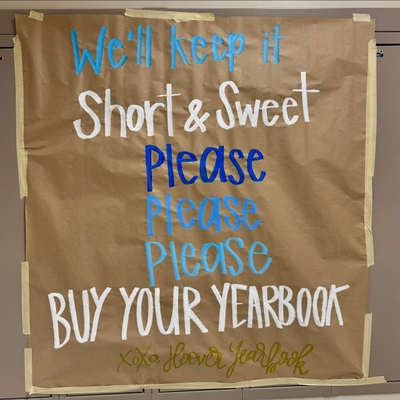 We'll keep it
Short & Sweet
Please
please
please
BUY YOUR YEARBOOK
xoxo Hoover Yearbook